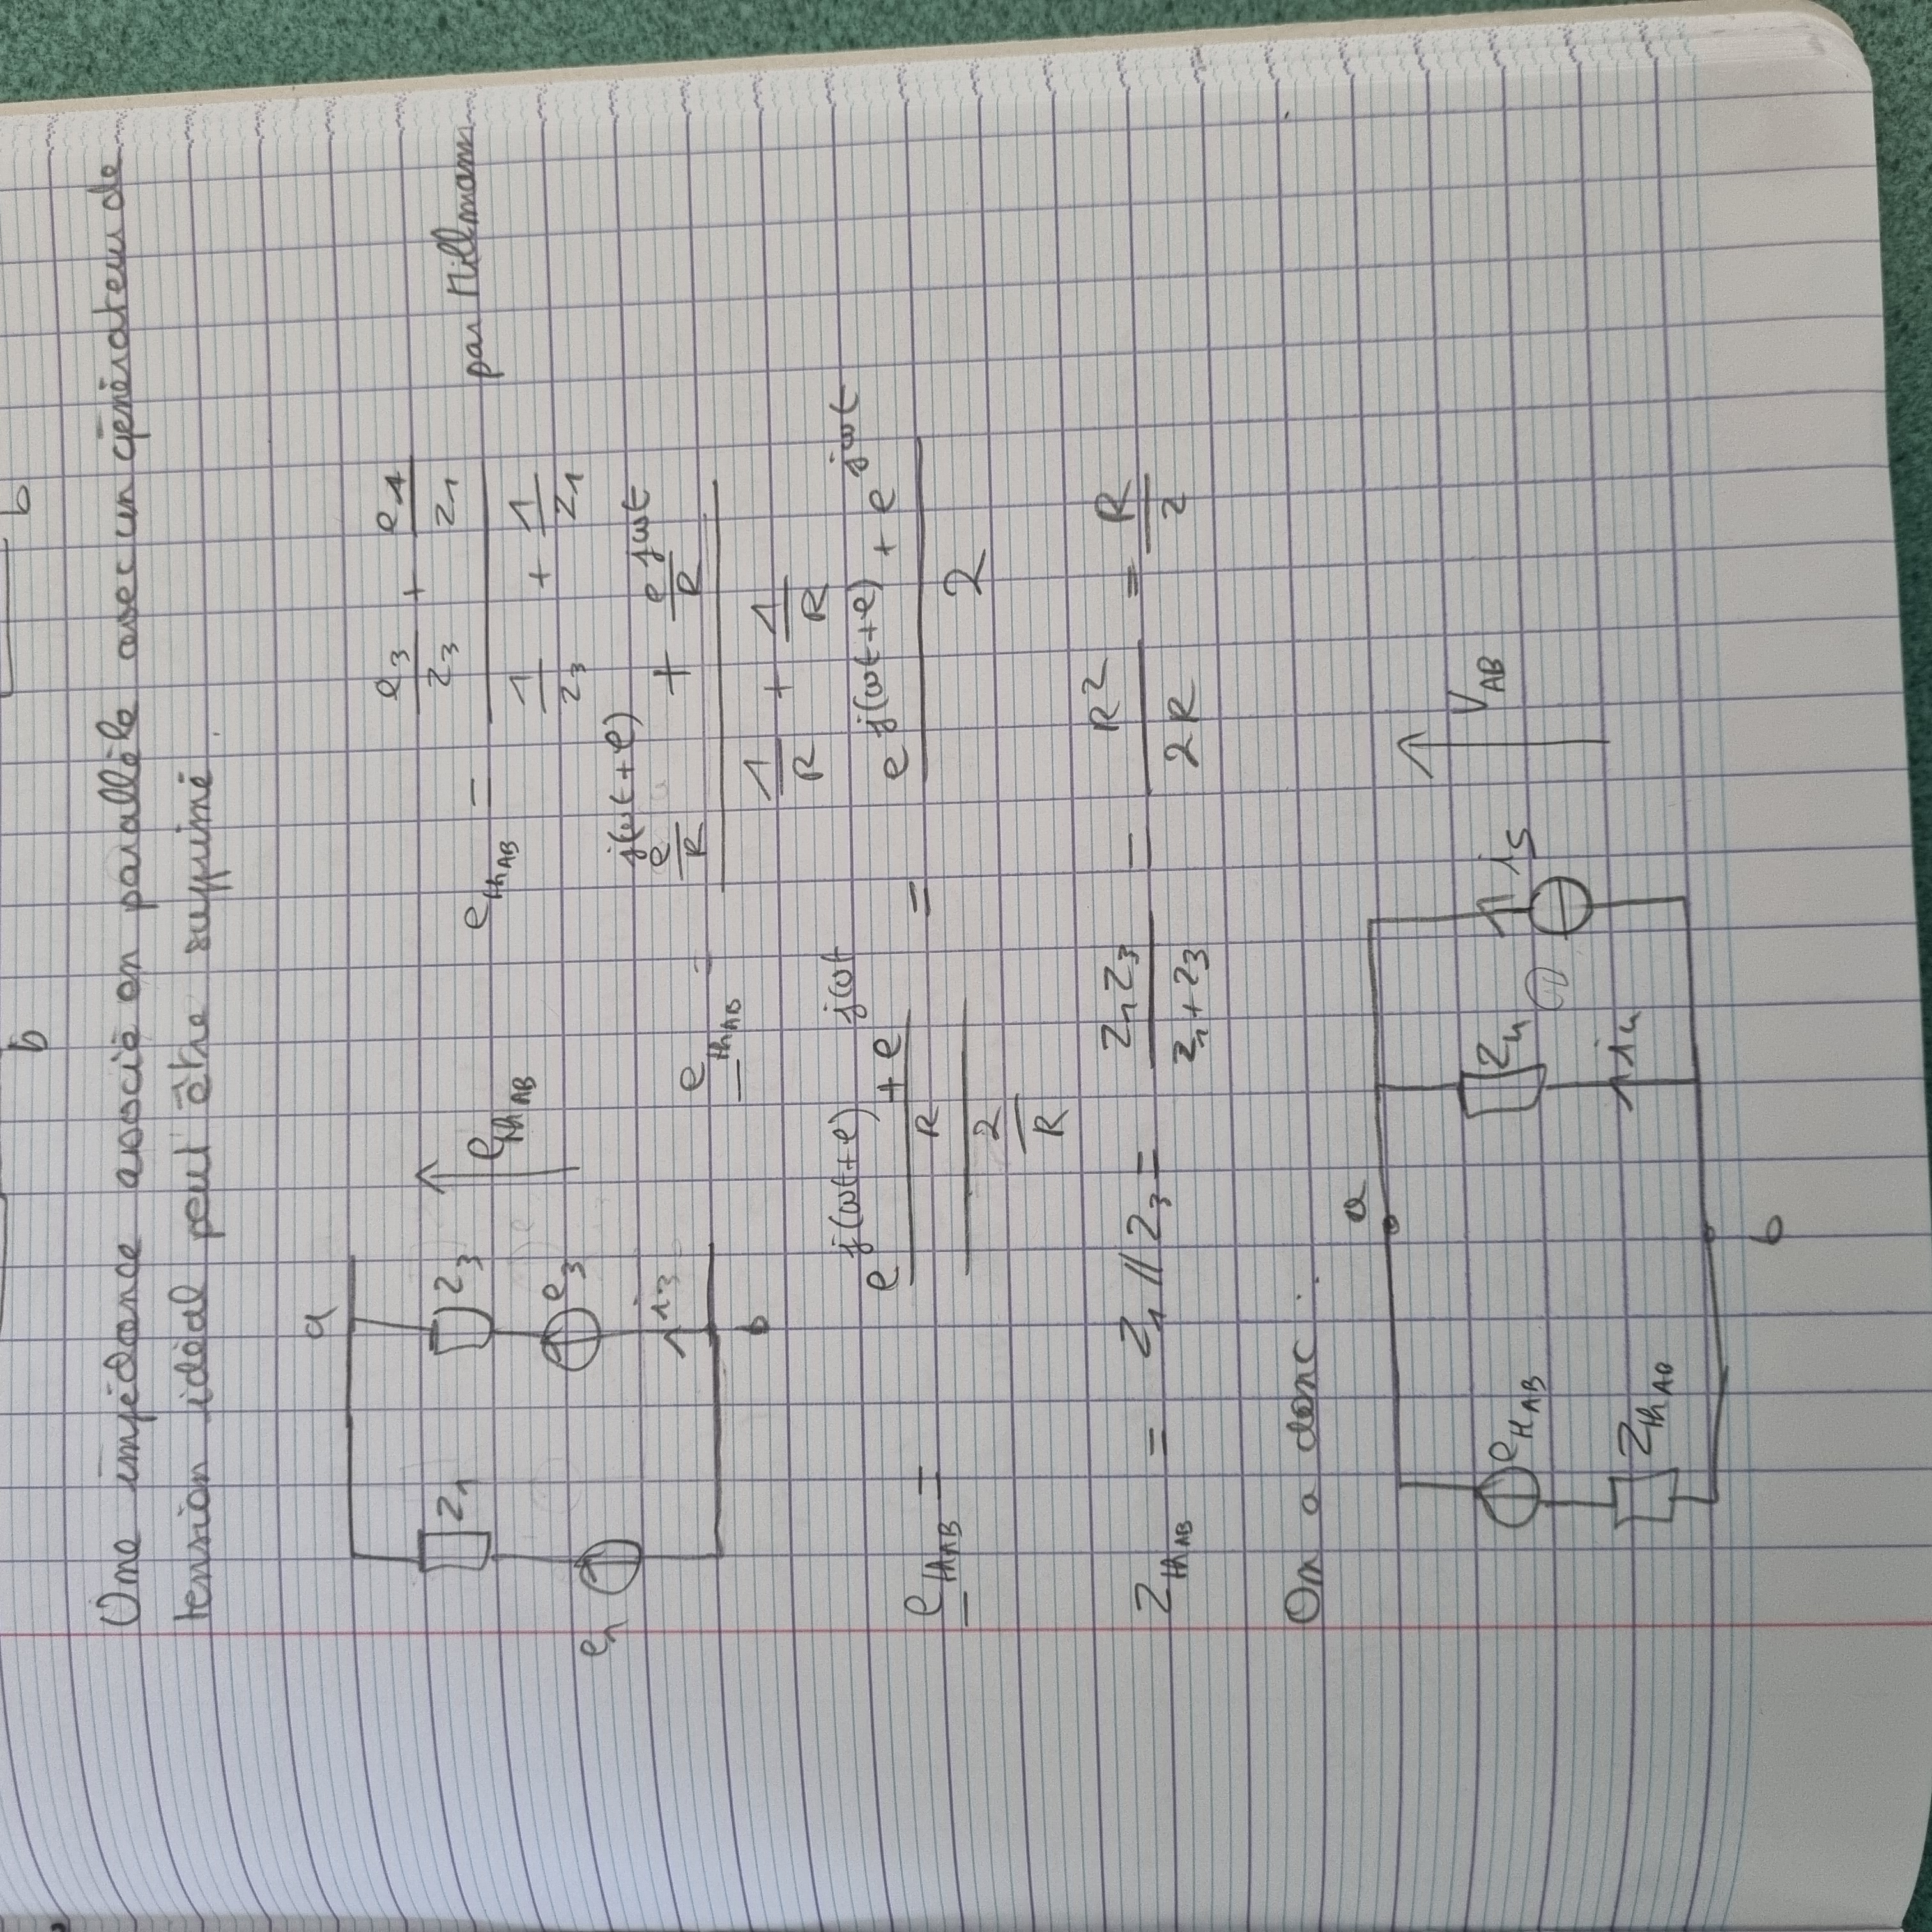 b b
Une impédance associé en parallèle avec un générateur de
tension idéal peut être supprimé.
a
Z1 Z3 e1 e3 i3 ethAB
b
ethAB = (e3/Z3 + e1/Z1) / (1/Z3 + 1/Z1) par Millmann
ethAB = (e^j(ωt+e)/R + e^jωt/R) / (1/R + 1/R)
ethAB = ((e^j(ωt+e) + e^jωt)/R) / (2/R) = (e^j(ωt+e) + e^jωt) / 2
ZthAB = Z1 // Z3 = Z1Z3 / (Z1+Z3) = R²/2R = R/2
On a donc :
a
eHAB Z4 i5 VAB
ZthAB i4
b